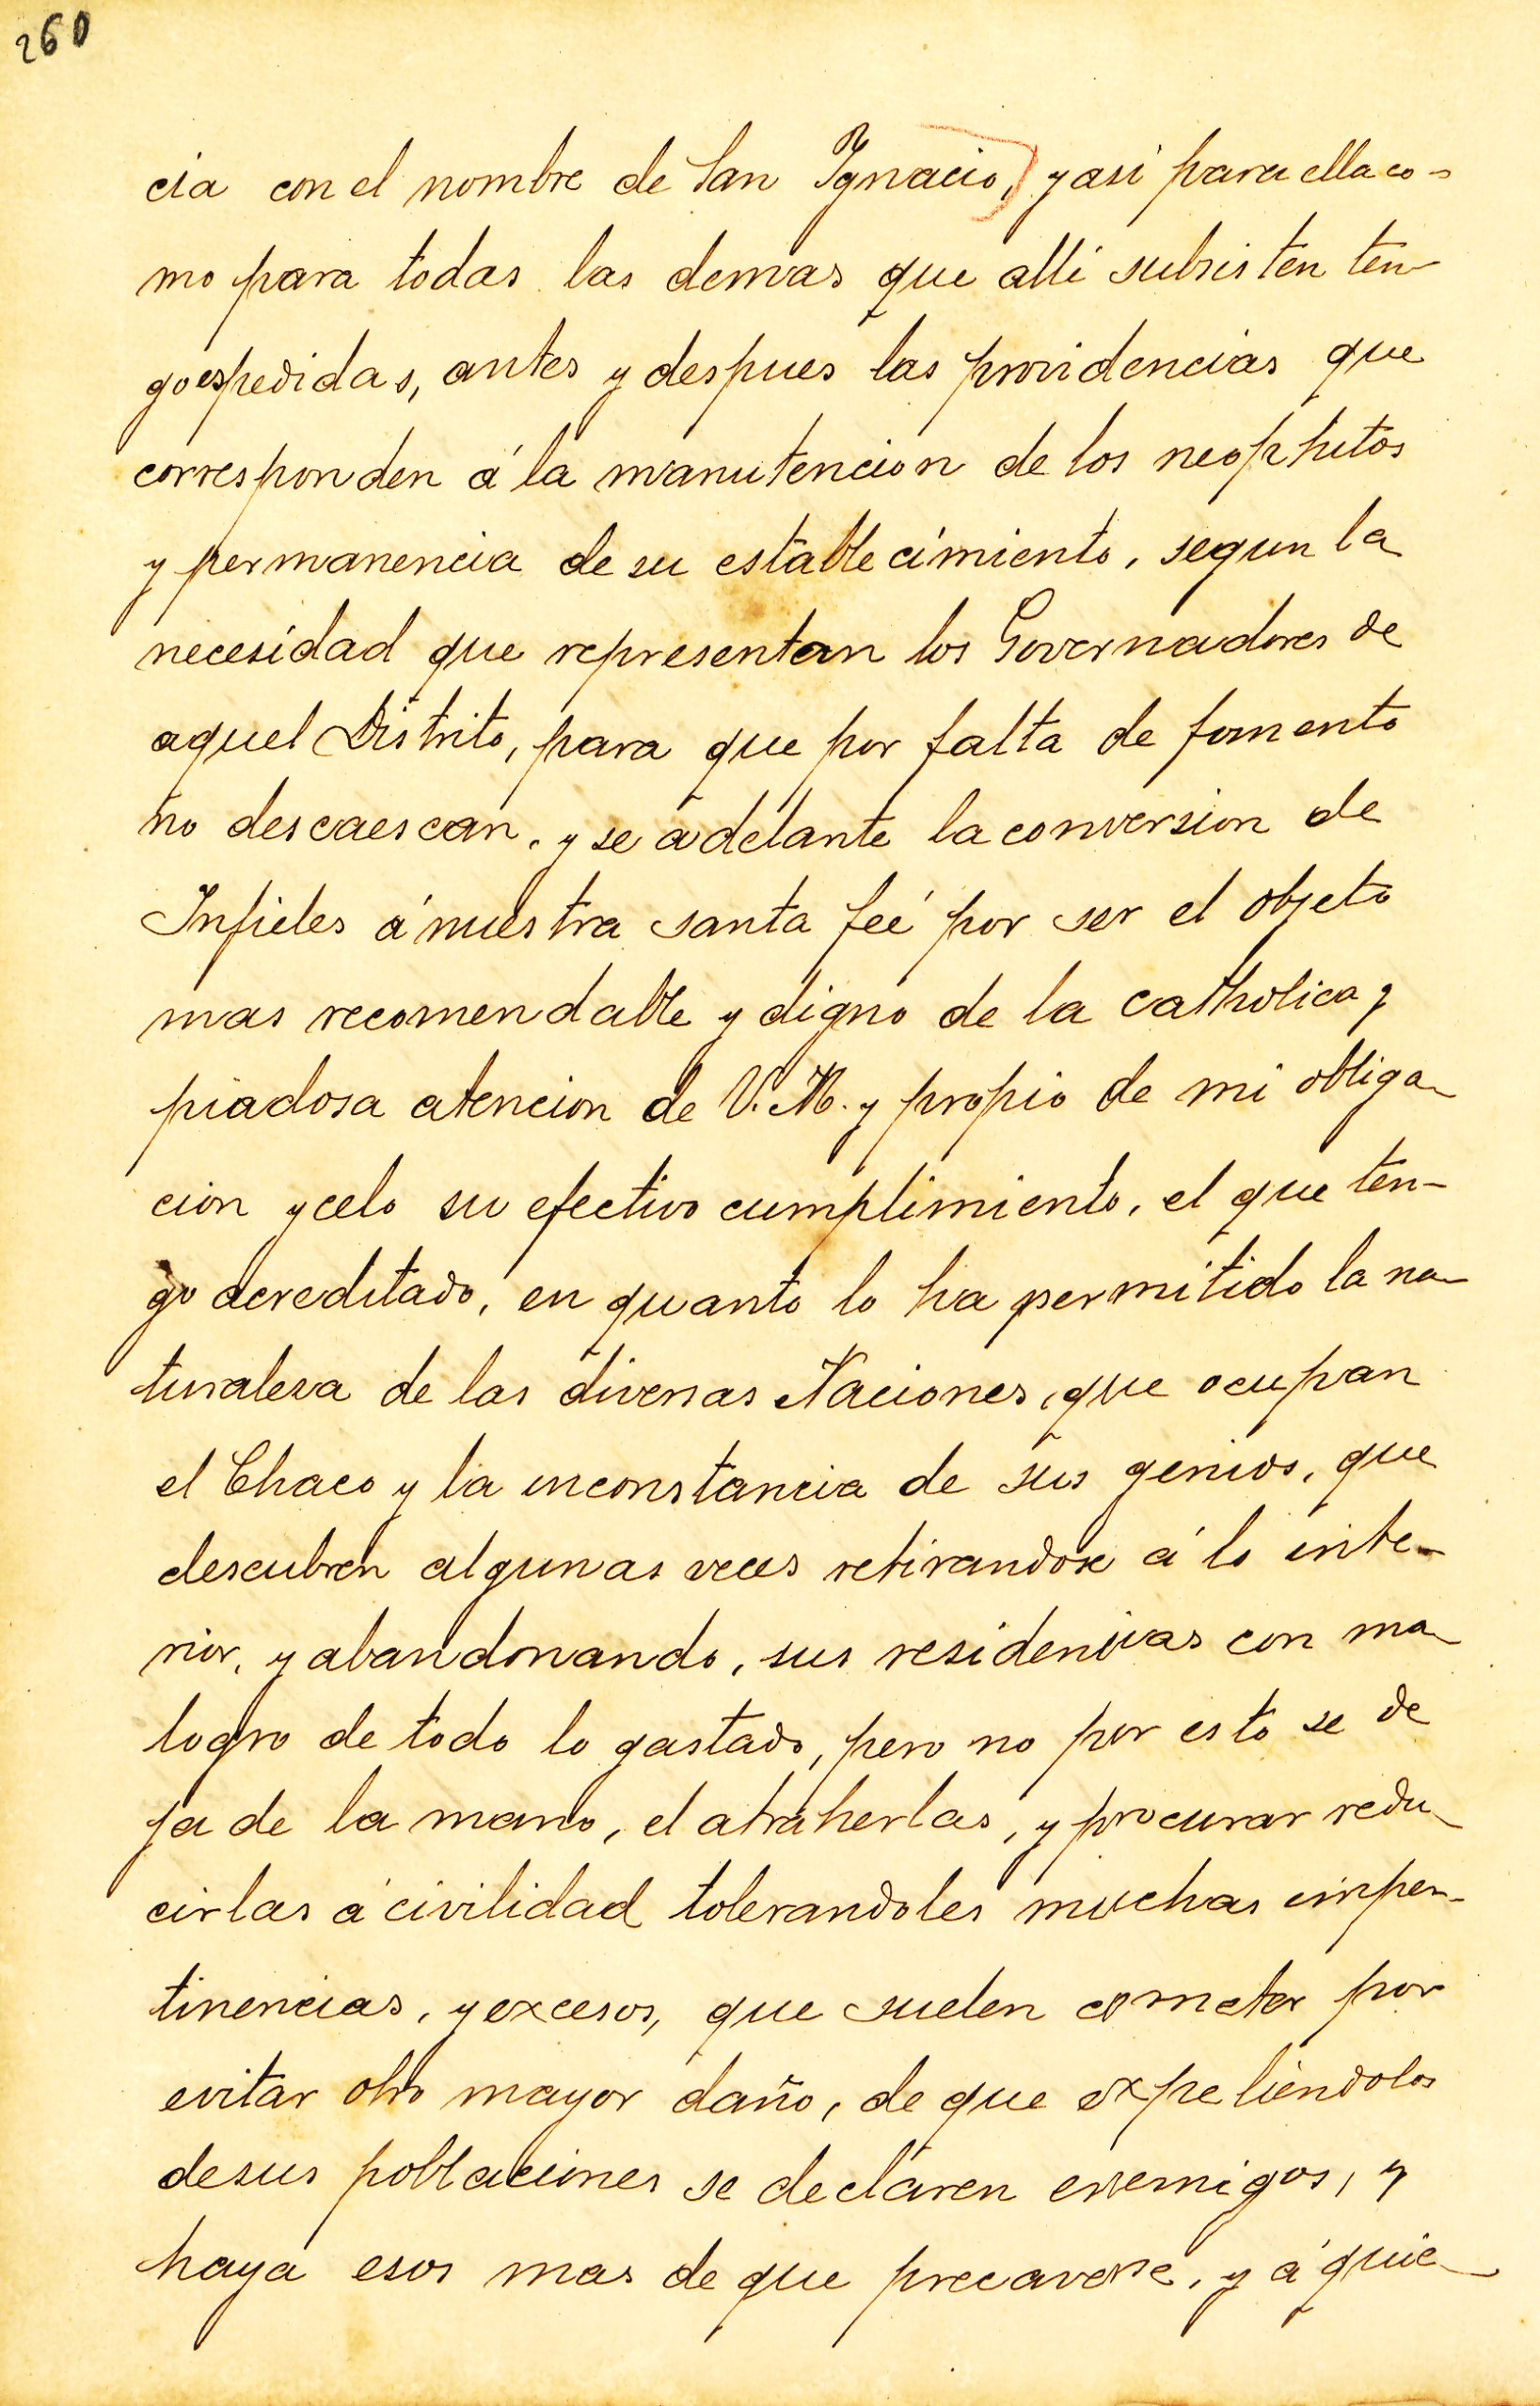 260
cia con el nombre de San Ygnacio, y asi para ella co-
mo para todas las demas que alli subsisten ten-
go espedidas, antes y despues las providencias que
corresponden á la manutencion de los neophitos
y permanencia de su establecimiento, segun la
necesidad que representan los Governadores de
aquel Distrito, para que por falta de fomento
no descaescan, y se adelante la conversion de
Infieles á nuestra santa feé por ser el objeto
mas recomendable y digno de la catholica y
piadosa atencion de V. M. y propio de mi obliga-
cion y celo su efectivo cumplimiento, el que ten-
go acreditado, en quanto lo ha permitido la na-
turaleza de las diversas Naciones, que ocupan
el Chaco y la inconstancia de sus genios, que
descubren algunas veces retirandose á lo inte-
rior, y abandonando, sus residencias con ma-
logro de todo lo gastado, pero no por esto se de
ja de la mano, el atraherlas, y procurar redu-
cirlas á civilidad tolerandoles muchas imper-
tinencias, y excesos, que suelen cometer por
evitar otro mayor daño, de que expeliéndolos
de sus poblaciones se declaren enemigos, y
haya esos mas de que precaverse, y á quie-